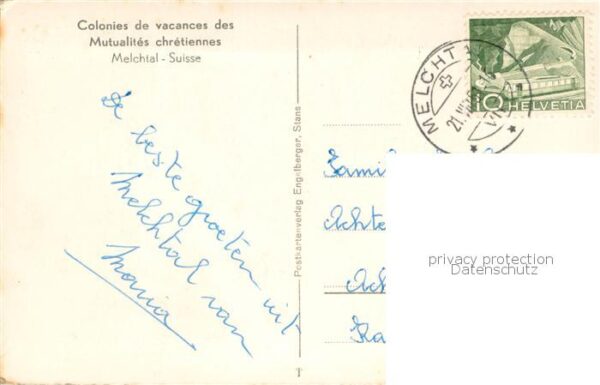 Colonies de vacances des
Mutualités chrétiennes
Melchtal - Suisse
De beste groeten uit
Melchtal van
Maria
Postkartenverlag Engelberger, Stans
T
10 HELVETIA
MELCHTAL
21.VII
Achte
Ach
privacy protection
Datenschutz